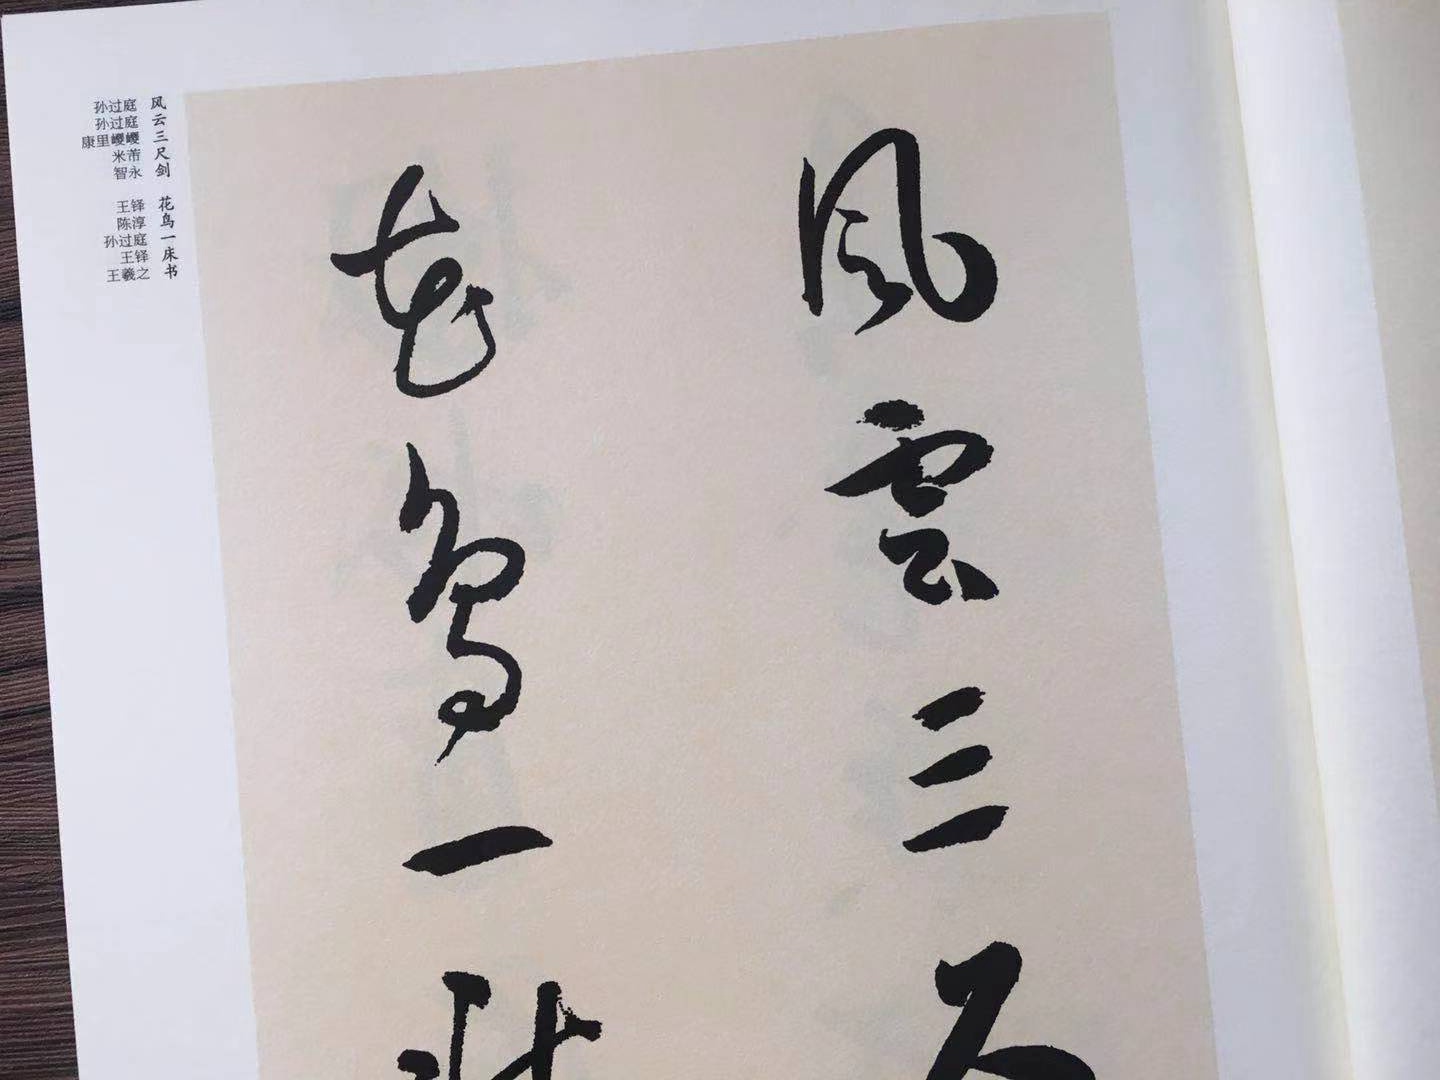 孙过庭 风
孙过庭 云
康里巎巎 三
米芾 尺
智永 剑
王铎 花
陈淳 鸟
孙过庭 一
王铎 床
王羲之 书
風雲三尺
花鸟一牀